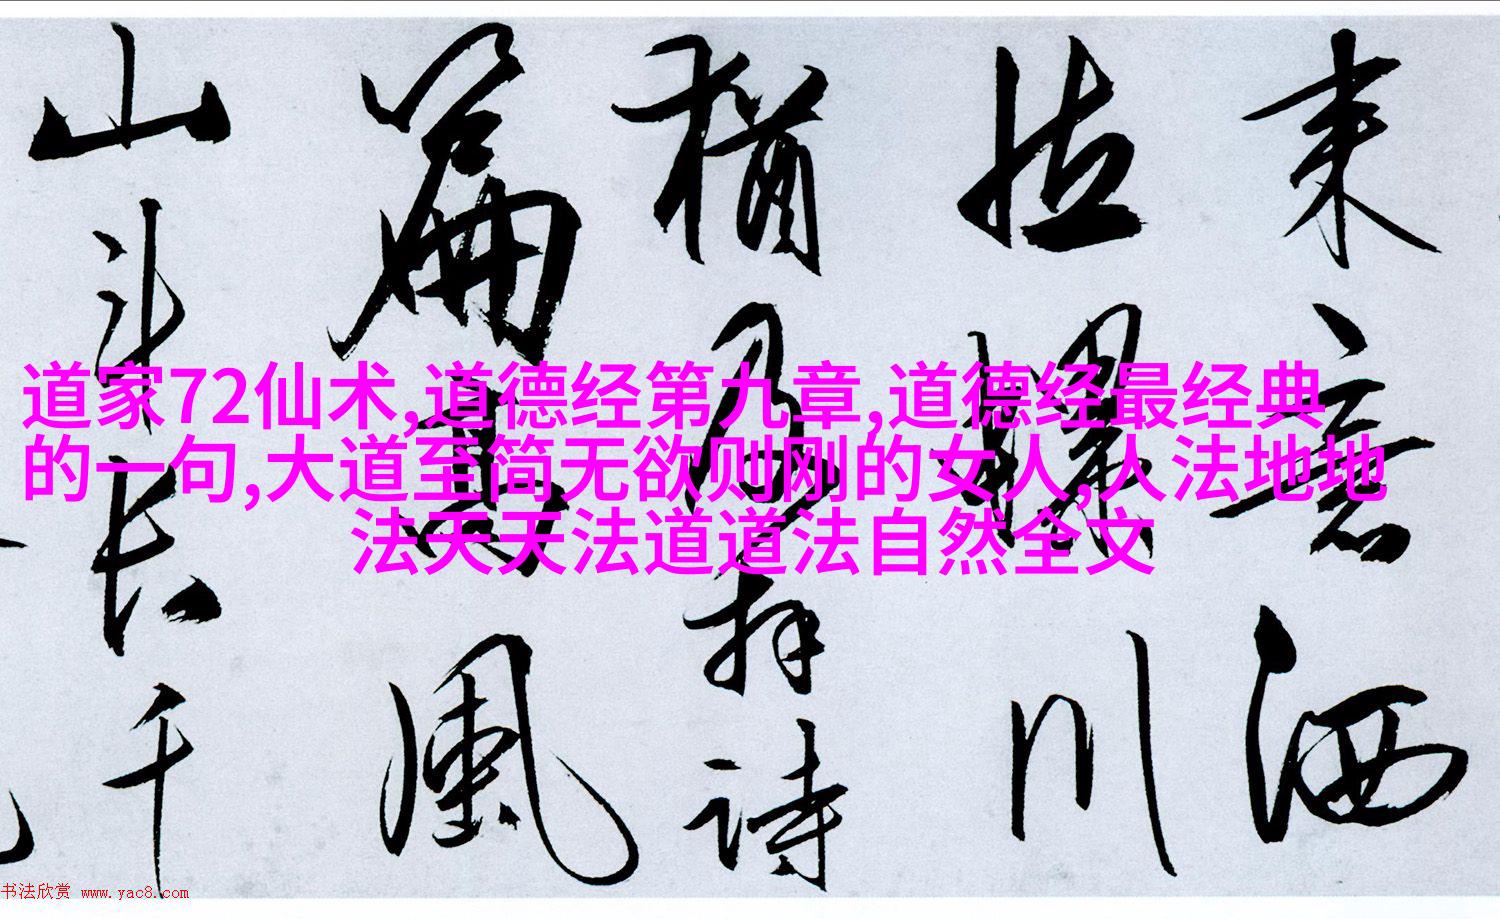 道家72仙术,道德经第九章,道德经最经典
的一句,大道至简无欲则刚的女人,人法地地
法天天法道道法自然全文
来意洒
川
犹
拜诗
篇
风
山斗长千
书法欣赏 www.yac8.com